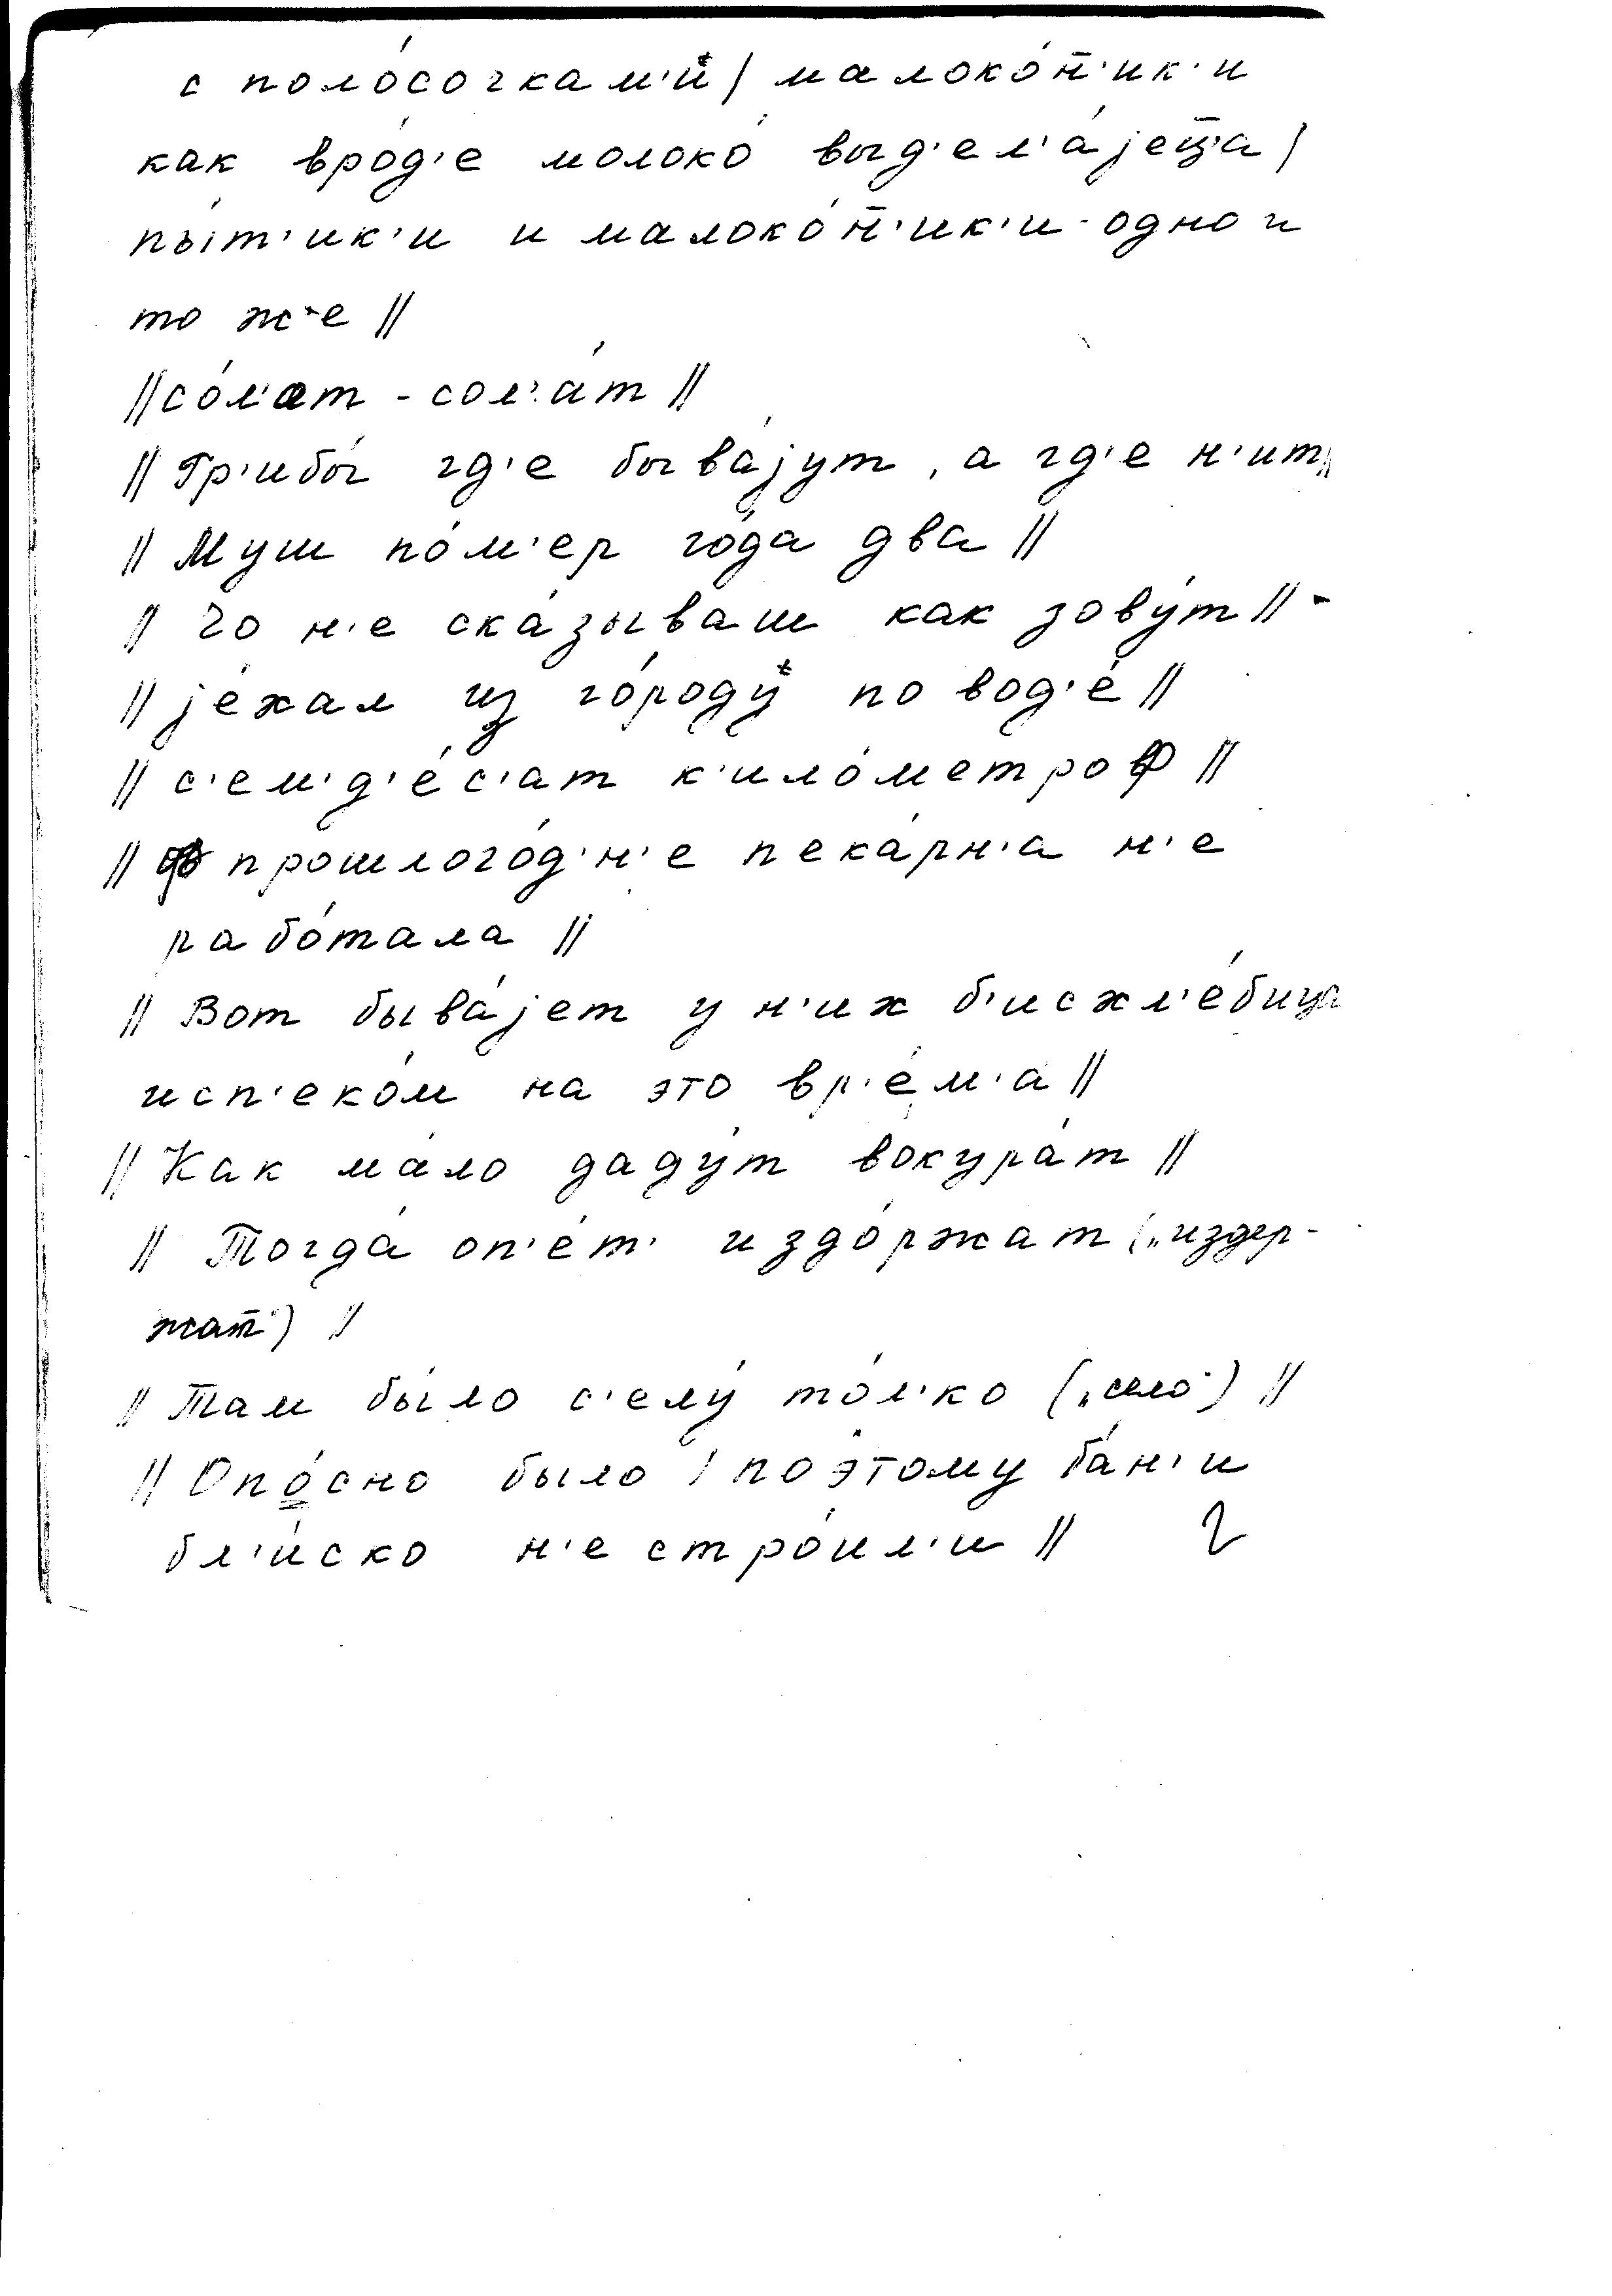 с поло́сочкам'и | малоко́н̄'ик'и
как вро́д'е молоко́ выд'ел'а́јец̄'а |
пы́т'ик'и и малоко́н̄'ик'и - одно и
то ж'е ||
|| со́л'ат - сол'а́т ||
|| Гр'ибы́ гд'е быва́јут, а гд'е н'ит ||
|| Муш по́м'ер го́да два ||
|| Чо н'е ска́зываш как зову́т || -
|| је́хал из го́роду по вод'е́ ||
|| с'ем'д'е́с'ат к'ило́метроф ||
|| ф прошлого́д'н'е пека́рн'а н'е
рабо́тала ||
|| Вот быва́јет у н'их б'исхл'е́бица
исп'еко́м на это вр'е́м'а ||
|| Как ма́ло даду́т вокура́т ||
|| Тогда́ оп'е́т' издо́ржат („издер-
жат") ||
|| Там бы́ло с'елу́ то́л'ко („село") ||
|| Опо́сно было | поэ́тому ба́н'и
бл'и́ско н'е стро́ил'и ||